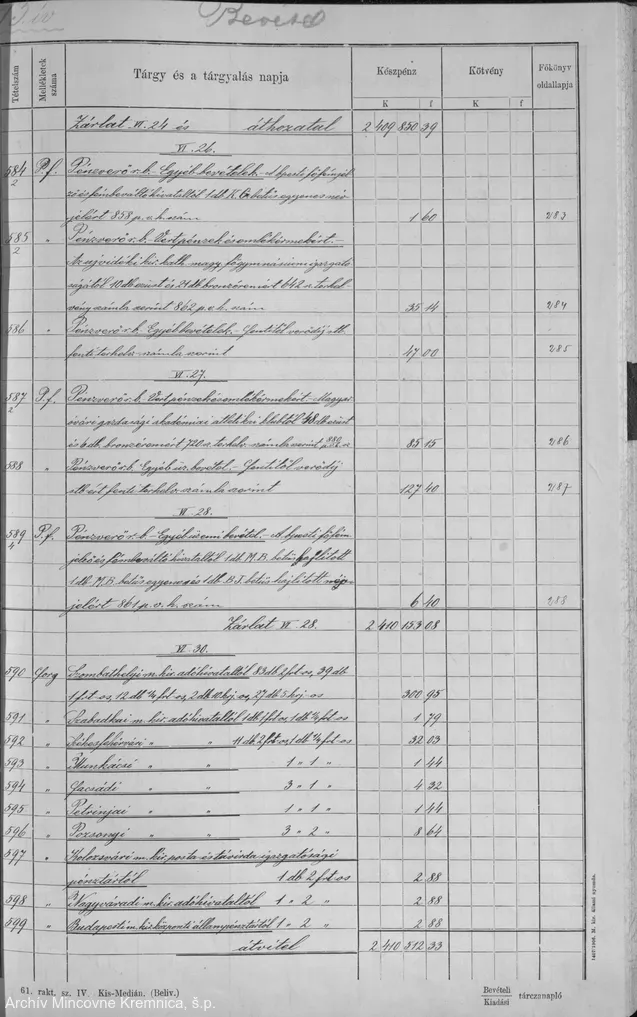 Bevétel
Tételszám
Mellékletek száma
Tárgy és a tárgyalás napja
Készpénz
Kötvény
Főkönyv oldallapja
K f K f
Zárlat VI. 24 és áthozatul 2 409 850 39
VI. 26.
584/2 P.f. Pénzverő r.b. Egyéb bevételek. A bpesti főfémjel
ző és fémbeváltó hivataltól 1 db K. betűs egyenes név
jelért 858 p.e.h. szám 1 60 283
585/2 " Pénzverő r.b. Vert pénzek és emlékérmekért.
Az ujvidéki kir. kath. magy. főgymnásium igazgató
ságától 10 db ezüst és 24 db bronzéremért 642 a. terhel
vény számla szerint 862 p.e.h. szám 35 14 284
586 " Pénzverő r.b. Egyéb bevételek. Fentitől verődíj stb.
fenti terhelv. számla szerint 47 00 285
VI. 27.
587/2 P.f. Pénzverő r.b. Vert pénzek és emlékérmekért. Magyar
óvári gazdasági akadémiai atletikai klubtól 48 db ezüst
és 6 db bronzéremért 720 a. terhelv. számla szerint 85 15 286
588 " Pénzverő r.b. Egyéb üz. bevétel. Fentitől verődíj
stb. ért fenti terhelv. számla szerint 127 40 287
VI. 28.
589/4 P.f. Pénzverő r.b. Egyéb üzemi bevétel. A bpesti főfém
jelző és fémbeváltó hivataltól 1 db M.B. betűs hajlított
1 db M.B. betűs egyenes és 1 db B.I. betűs hajlított név
jelért 861 p.e.h. szám 6 40 288
Zárlat VI. 28. 2 410 153 08
VI. 30.
590 Forg Szombathelyi m. kir. adóhivataltól 83 db 2 frt-os, 39 db
1 frt-os, 12 db ¼ frt-os, 2 db 10 krj-os, 27 db 5 krj-os 300 95
591 " Szabadkai m. kir. adóhivataltól 1 db 1 frt os, 1 db ¼ frt-os 1 79
592 " Székesfehérvári " " 11 db 2 frt-os 1 db ¼ frt-os 32 03
593 " Munkácsi " " 1 " 1 " 1 44
594 " Facsádi " " 3 " 1 " 4 32
595 " Petrinjai " " 1 " 1 " 1 44
596 " Pozsonyi " " 3 " 2 " 8 64
597 " Kolozsvári m. kir. posta és távirda igazgatósági
pénztártól 1 db 2 frt-os 2 88
598 " Nagyváradi m. kir. adóhivataltól 1 " 2 " 2 88
599 " Budapesti m. kir. központi állampénztártól 1 " 2 " 2 88
átvitel 2 410 512 33
61. rakt. sz. IV. Kis-Medián. (Beliv.)
Bevételi
Kiadási
tárcanapló
M. kir. állami nyomda.
Archív Mincovne Kremnica, š.p.